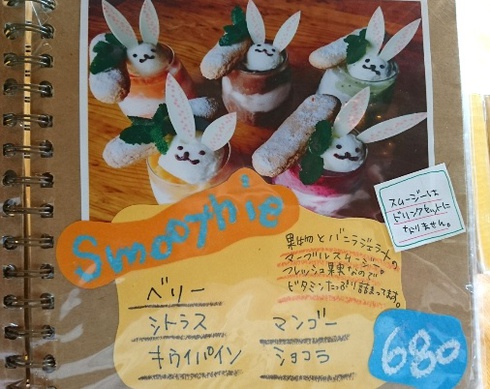 Smoothie
スムージーは
ドリンクセットに
なりません。
果物とバニラジェラートの
マーブルスムージー。
フレッシュ果実なので
ビタミンたっぷり詰まってます。
ベリー
シトラス
マンゴー
キウイパイン
ショコラ
680